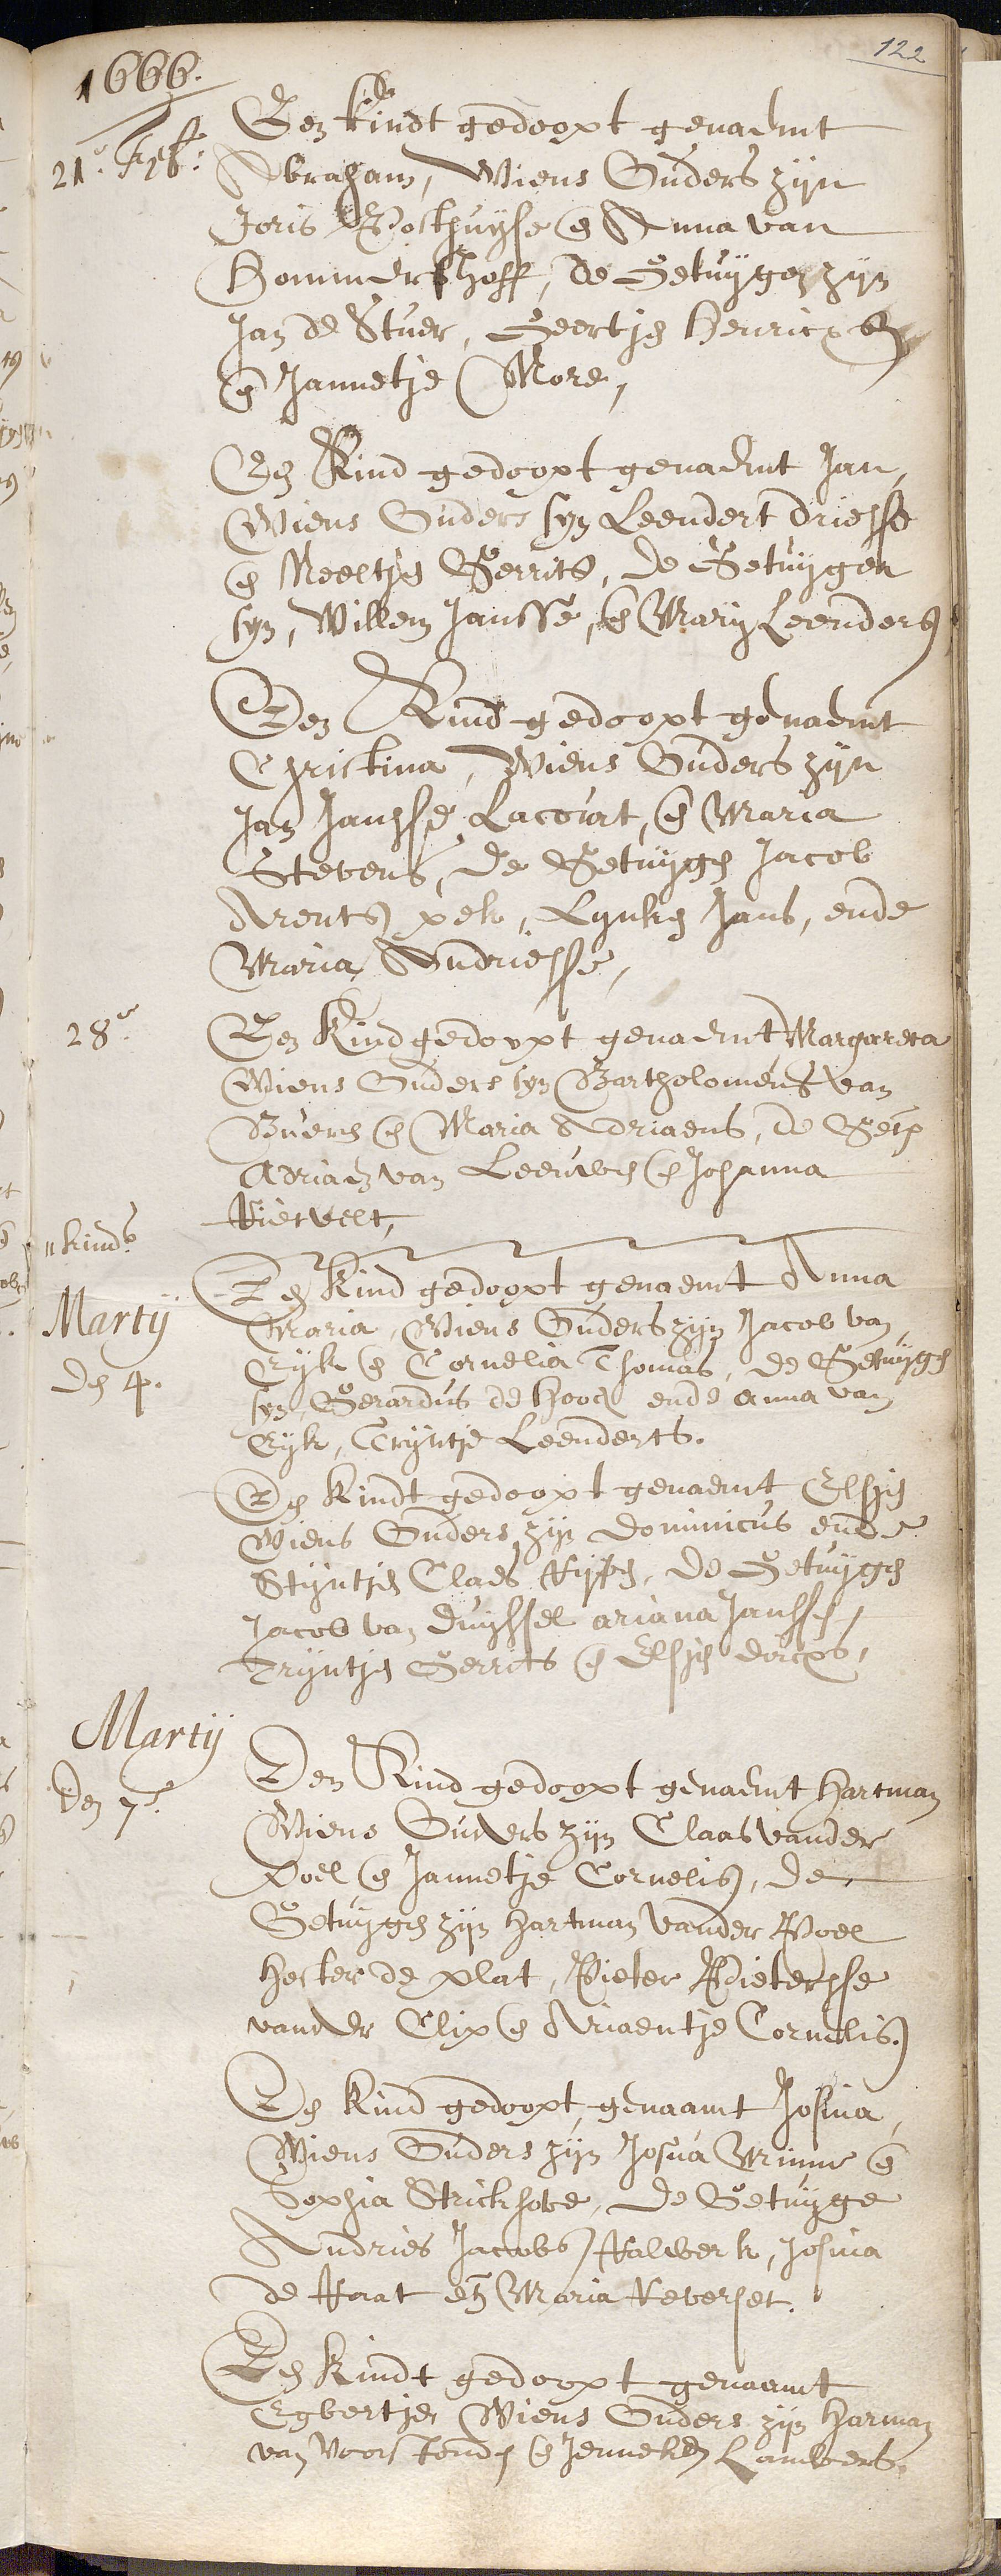 122
1666.
21. Feb:
Een kindt gedoopt genaemt
Abraham, Wiens Ouders zijn
Joris Posthuyse en Anna van
Hommershoff, de Getuygen zijn
Jan de Stuer, Geertje Henricx
en Jannetje More,
Een Kind gedoopt genaemt Jan,
Wiens Ouders syn Leendert driesse
en Neeltje Gerrits, de Getuygen
syn, Willem Jansse, en Mary Leenders
Een Kind gedoopt genaemt
Christina, Wiens Ouders zijn
Jan Jansse Lacourt, en Maria
Stevens, de Getuygen Jacob
Arents pek, Lynken Jans, ende
Maria Andriesse,
28en
Een Kind gedoopt genaemt Margareta
Wiens Ouders syn Bartholomeus van
Buere en Maria Adriaens, de Get
Adriaen van Leeuwen en Johanna
Kiervelt,
11 kind
Martij
den 4.
Een kind gedoopt genaemt Anna
Maria, Wiens Ouders zijn Jacob van
Eyk en Cornelia Thomas, de Getuygen
syn, Gerardus de Hooch ende Anna van
Eyk, Tryntje Leenderts.
Een kindt gedoopt genaemt Elsje
Wiens Ouders zijn Dominicus ende
Styntje Claes de Getuygen
Jacob van Duyssel ariana Jansse,
Tryntje Gerrits en Elsje dircx,
Martij
Den 7e.
Een Kind gedoopt genaemt Hartman
Wiens Ouders zijn Claas vander
Poel en Jannetje Cornelis, de
Getuygen zijn Hartman vander Poel
Hester de plat, Pieter Pietersse
vander Clip en Ariaentje Cornelis.
Een Kind gedoopt genaamt Josina,
Wiens Ouders zijn Josua Minne en
Sophia Strickhove, de Getuyge
Andries Jacobs Kalwerk, Josina
de Kaat en Maria Keverset.
Een Kindt gedoopt genaamt
Egbertje Wiens Ouders zijn Harman
van Voorst en Jenneken Lamberts.